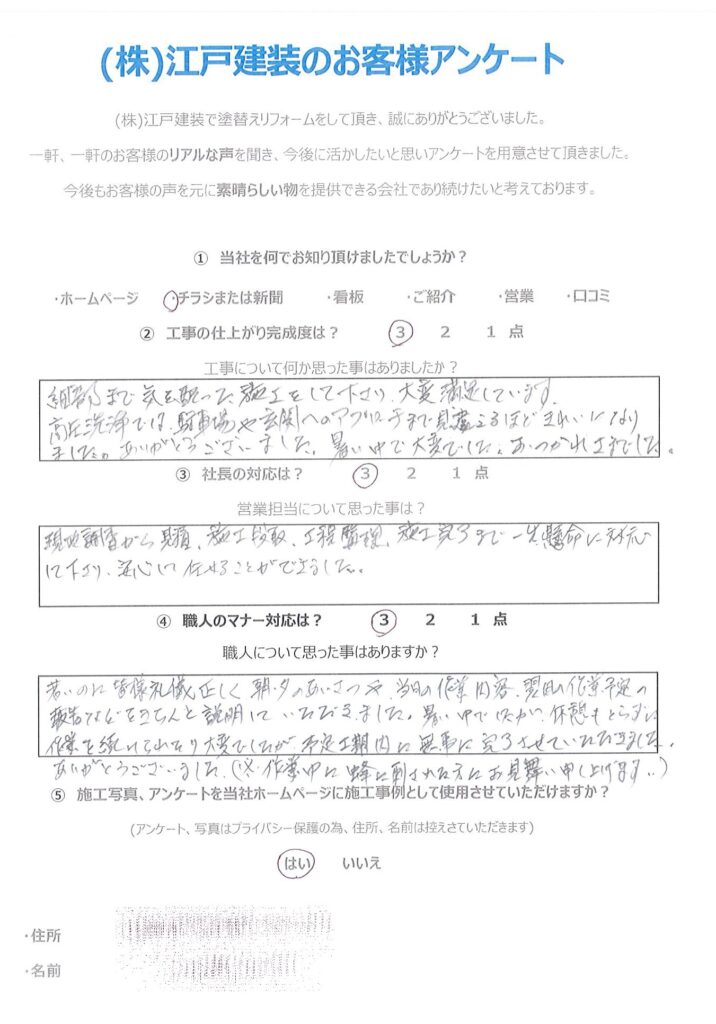 (株)江戸建装のお客様アンケート
(株)江戸建装で塗替えリフォームをして頂き、誠にありがとうございました。
一軒、一軒のお客様のリアルな声を聞き、今後に活かしたいと思いアンケートを用意させて頂きました。
今後もお客様の声を元に素晴らしい物を提供できる会社であり続けたいと考えております。
① 当社を何でお知り頂けましたでしょうか？
・ホームページ ・チラシまたは新聞 ・看板 ・ご紹介 ・営業 ・口コミ
② 工事の仕上がり完成度は？ 3 2 1 点
工事について何か思った事はありましたか？
細部まで気を配った施工をして下さり、大変満足しています。
高圧洗浄では、駐車場や玄関へのアプローチまで見違えるほどきれいになり
ました。ありがとうございました。暑い中で大変でした。おつかれさまでした。
③ 社長の対応は？ 3 2 1 点
営業担当について思った事は？
現地調査から見積、施工段取、工程管理、施工完了まで一生懸命に対応
して下さり、安心して任せることができました。
④ 職人のマナー対応は？ 3 2 1 点
職人について思った事はありますか？
若いのに皆様礼儀正しく朝・夕のあいさつや、当日の作業内容、翌日の作業予定の
報告などをきちんと説明していただきました。暑い中でしたが、休憩もとらずに
作業を続けられたり大変でしたが、予定工期内に無事に完了させていただきました。
ありがとうございました。(※作業中に蜂に刺された方にお見舞い申し上げます‥)
⑤ 施工写真、アンケートを当社ホームページに施工事例として使用させていただけますか？
(アンケート、写真はプライバシー保護の為、住所、名前は控えさていただきます)
はい いいえ
・住所
・名前